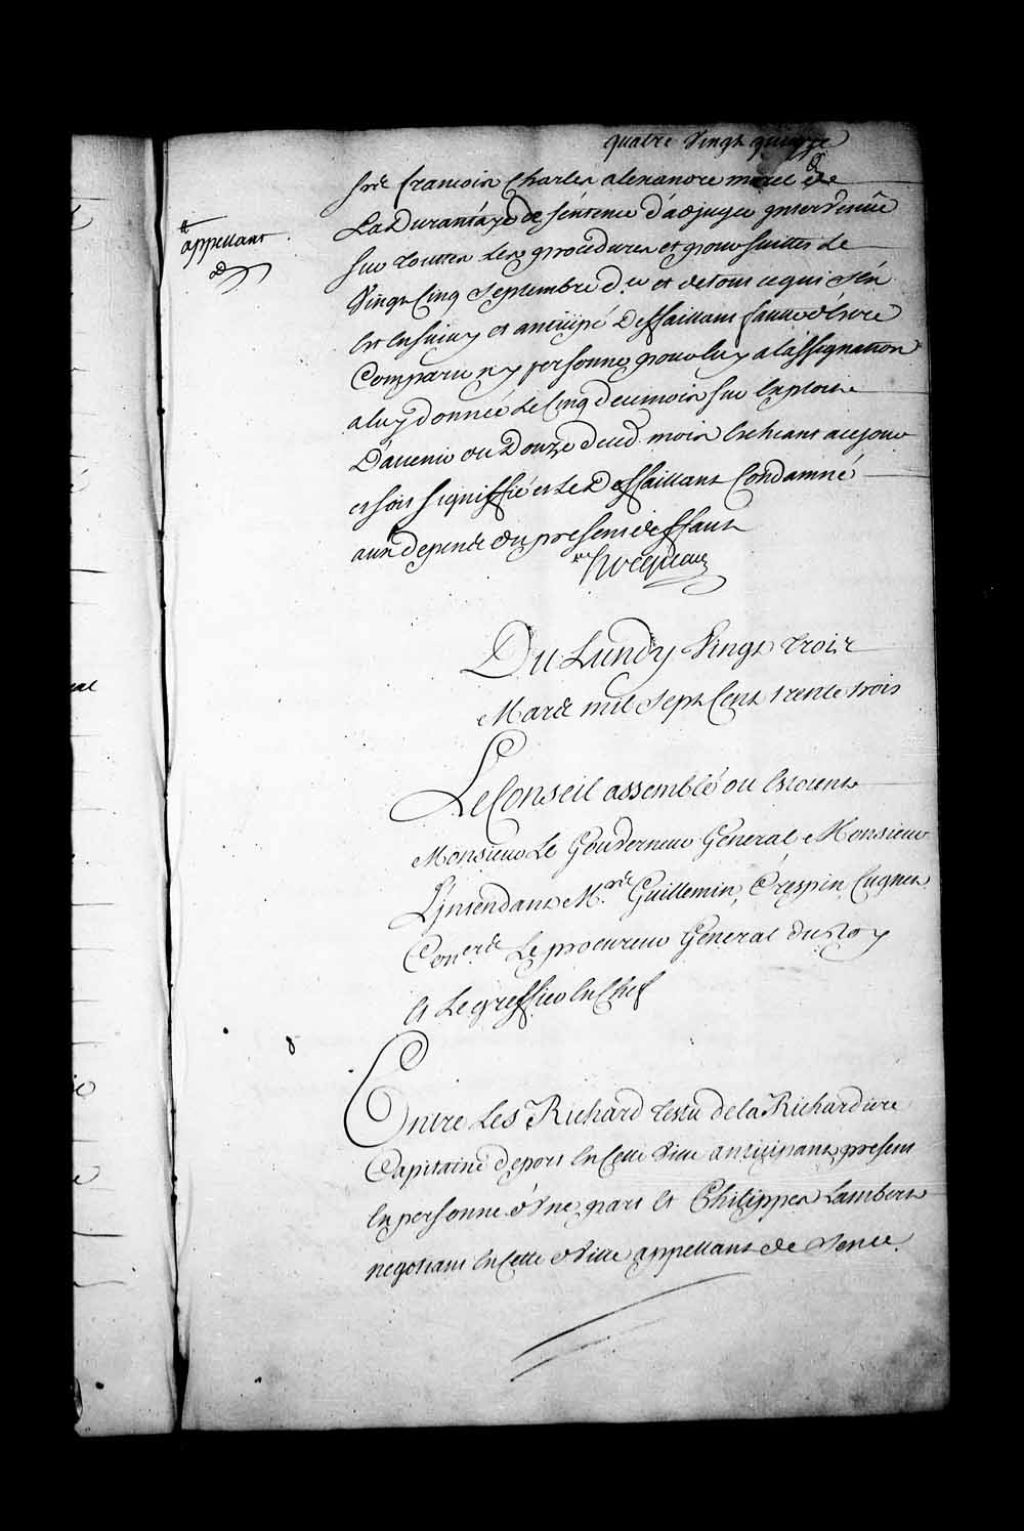 quatre Vingt quinze
Srs. francois Charles alexandre morel de
appellant
La Durantaye de séntence d'adjugée intervenüe
sur touttes les procedures et poursuittes le
Vingt Cinq Septembre d.er et de tout ce qui s'en
Est Ensuivy et anticipé Deffaillant faute d'Estre
Comparu ny personne pour luy a l'assignation
a luy donnée Le Cinq de ce mois sur Exploit
D'avenir au Douze dud. mois Echeant ace jour
et soit signiffié et Le Deffaillant Condamné
aux depens du present deffaut
hocquart
Du Lundy Vingt trois
Mars mil sept Cent trente trois
Le Conseil assemblé ou Estoient
Monsieur Le Gouverneur General Monsieur
L'jntendant M.rs Guillemin, Crespin, Cugnet
Con.ers Le procureur General du Roy
Et Le greffier En Chef
Entre Les Richard testu de la Richardiere
Capitaine de port En Cette Ville anticipant present
En personne d'Vne part Et Philippes Lambert
negotiant En Cette Ville appellant de Sence.